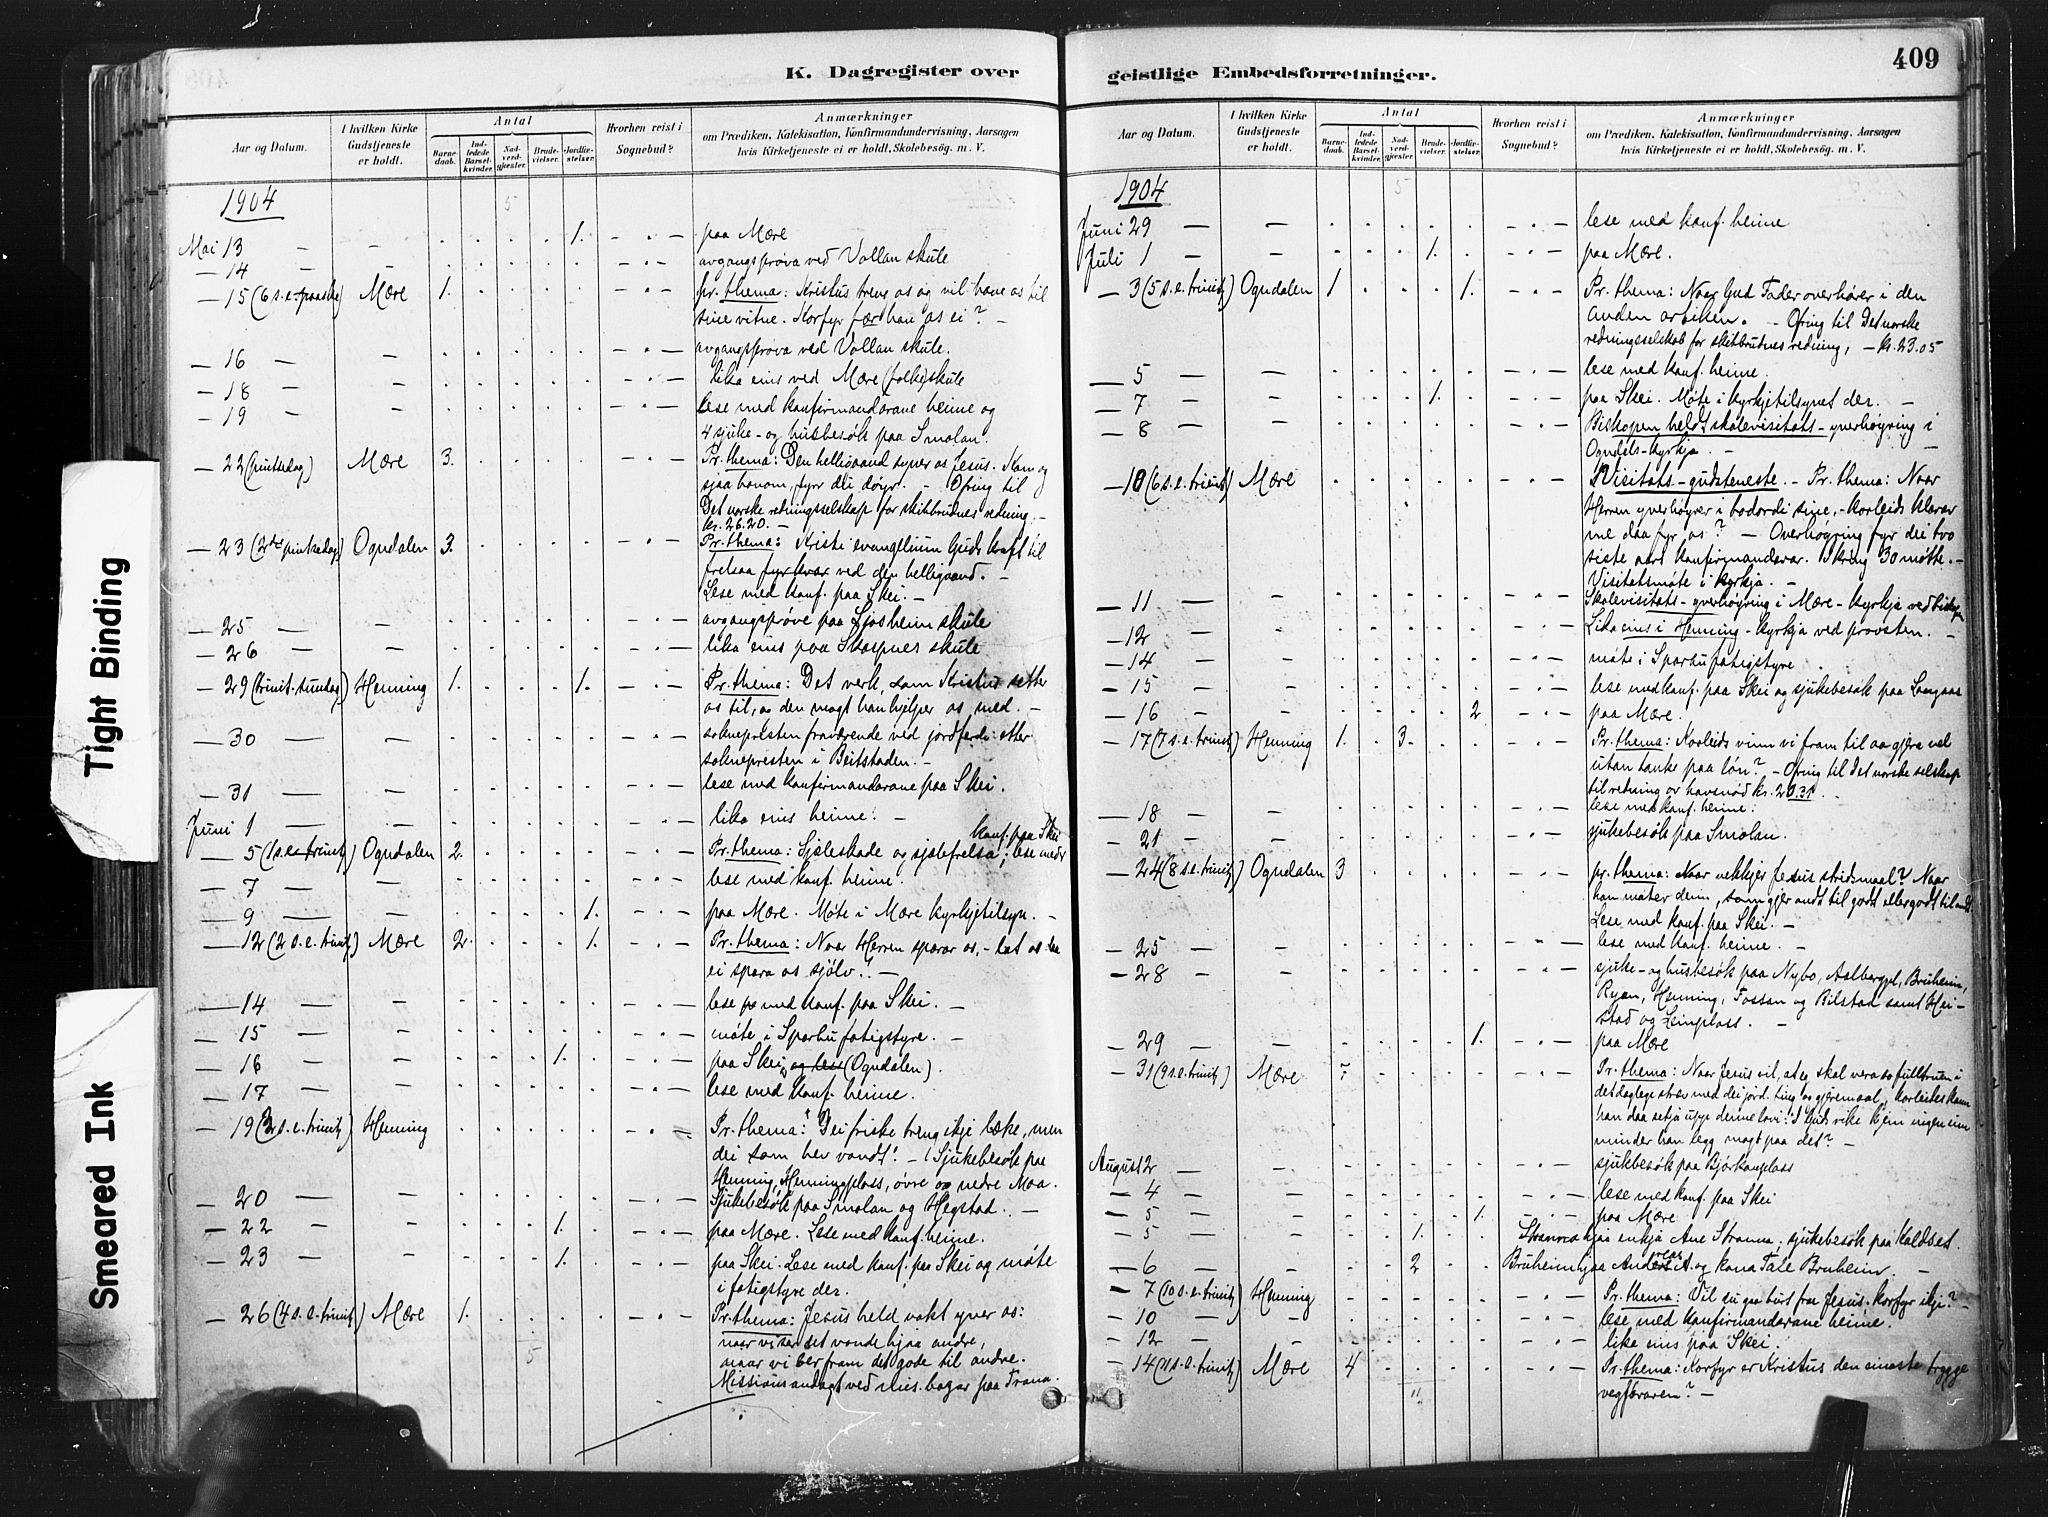 K. Dagregister over
Aar og Datum.
I hvilken Kirke Gudstjeneste er holdt.
Antal
Barnedaab.
Indledede Barselkvinder.
Nadverdgjester.
Brudevielser.
Jordfæstelser.
Hvorhen reist i Sognebud?
Anmærkninger
om Prædiken, Katekisation, Konfirmandundervisning, Aarsagen
hvis Kirketjeneste ei er holdt, Skolebesøg. m. V.
1904
5
Mai 13 — — 1. — paa Mære
— 14 — — avgangsprøva ved Vollan skule
— 15 (6 s.e. paaske) Mære 1. pr. thema: Kristus treng os og vil have os til
sine vitne. Korfyr fær han os ei? —
— 16 — — avgangsprøva ved Vollan skule.
— 18 — — lika eins ved Mære (folke)skule
— 19 — — lese med konfirmandarane heime og
4 sjuke- og husbesøk paa Smolan.
— 22 (pintsedag) Mære 3. Pr. thema: Den helligaand syner os Jesus. Kom og
sjaa honom, fyrr dei døyr. — Ofring til
Det norske redningsselskap for skibbrudnes redning —
kr. 26.20. —
— 23 (2den pintsedag) Ogndalen 3. Pr. thema: Kristi evangelium Guds kraft til
frelsa fyr kvar ved den helligaand. —
Lese med konf. paa Skei. —
— 25 — — avgangsprøve paa Ljosheim skule
— 26 — — lika eins paa Skarpnes skule
— 29 (trinit. sundag) Henning 1. 1. Pr. thema: Det verk, som Kristus setter
os til, og den magt han hjelper os med. —
— 30 — sokneprsten fraværende ved jordferdi etter
soknepresten i Beitstaden. —
— 31 — — lese med konfirmandarane paa Skei.
Juni 1 — — lika eins heime. —
konf. paa Skei
— 5 (1 s.e. trinit) Ogndalen 2. Pr. thema: Sjæleskade og sjælefrelsa; lese med
— 7 — — lese med konf. heime.
— 9 — — 1. paa Mære. Møte i Mære kyrkjetilsyn. —
— 12 (2 s.e. trinit) Mære 2. 1. Pr. thema: Naar Herren sparar os, - lat os da
ei spara os sjølv! —
— 14 — — lese med konf. paa Skei. —
— 15 — — møte i Sparbu fatigstyre. —
— 16 — — 1. paa Skei og lese (Ogndalen).
— 17 — — lese med konf. heime.
— 19 (3 s.e. trinit) Henning Pr. thema: Dei friske treng ikje læke, men
dei som hev vondt! — (Sjukebesøk paa
Henning, Henningplass, øvre og nedre Moa.
— 20 — — Sjukebesøk paa Smolan og Hegstad. —
— 22 — — 1. paa Mære. Lese med konf. heime.
— 23 — — 1. paa Skei. Lese med konf. paa Skei og møte
i fatigstyre der.
— 26 (4 s.e. trinit) Mære 1. Pr. thema: Jesus held vakt yver os:
naar vi ser det vonde hjaa andre,
5
naar vi ber fram det gode til andre.
Missionsandagt ved mis. bazar paa Trana.
409
geistlige Embedsforretninger.
Aar og Datum.
I hvilken Kirke Gudstjeneste er holdt.
Antal
Barnedaab.
Indledede Barselkvinder.
Nadverdgjester.
Brudevielser.
Jordfæstelser.
Hvorhen reist i Sognebud?
Anmærkninger
om Prædiken, Katekisation, Konfirmandundervisning, Aarsagen
hvis Kirketjeneste ei er holdt, Skolebesøg. m. V.
1904
5
Juni 29 — — lese med konf. heime
Juli 1 — — 1. paa Mære.
— 3 (5 s.e. trinit) Ogndalen 1 1. Pr. thema: Naar Gud Fader overhører i den
anden artiklen. — Ofring til Det norske
redningsselskab for skibbrudnes redning, — kr. 23.05
— 5 — — lese med konf. heime.
— 7 — — 1. paa Skei. Møte i kyrkjetilsynet der. —
— 8 — — Biskopen heldt skolevisitats- yverhøyring i
Ogndals-kyrkja. —
— 10 (6 s.e. trinit) Mære Visitats-gudsteneste. — Pr. thema: Naar
Herren yverhøyrer i bodordi sine, - korleids klarar
me daa fyr os? — Overhøyring fyr dei tvo
siste aars konfirmandarar. Ikring 30 møtte. —
Visitatsmøte i kyrkja. —
— 11 — Skolevisitats-yverhøyring i Mære-kyrkja ved biskopen
— 12 — — Lika eins i Henning-kyrkja ved provsten. —
— 14 — — møte i Sparbu fatigstyre
— 15 — — lese med konf. paa Skei og sjukebesøk paa Langaas
— 16 — — 2 paa Mære.
— 17 (7 s.e. trinit) Henning 1. 3. Pr. thema: Korleids vinn vi fram til aa gjera vel
utan tanke paa løn? — Ofring til Det norske selskap
til redning ov havsnød kr. 20.31.
— 18 — — lese med konf. heime.
— 21 — — sjukebesøk paa Smolan.
— 24 (8 s.e. trinit) Ogndalen 3 pr. thema: Naar vekkjer Jesus stridsmaal? Naar
han møter deim, som gjer ondt til godt eller godt til ondt.
Lese med konf. paa Skei. —
— 25 — — lese med konf. heime. —
— 28 — — sjuke- og husbesøk paa Nybo, Aalbergpl, Bruheim,
Ryan, Henning, Fossan og Bilstad samt Hei-
stad og Leinplass. —
— 29 — — 1. paa Mære
— 31 (9 s.e. trinit) Mære Pr. thema: Naar Jesus vil, at eg skal vera so fulltruen i
det daglege strev med dei jord. ting og gjeremaal, korleides kann
han daa setja uppe denne lovi: I Guds rike kjem ingen inn
minder han legg magt paa det? —
August 2 — — sjukbesøk paa Bjørkanplass
— 4 — — lese med konf. paa Skei
— 5 — — 1. paa Mære
— 5 — — 1. Stranna hjaa enkja Ane Stranna. sjukebesøk paa Kaldset.
— 6 — — 2 Bruheim hjaa Andreas og kona Tale Bruheim. —
— 7 (10 s.e. trinit) Henning Pr. thema: Vil du gaa burt fra Jesus, korfyr ikje? —
— 10 — lese med konfirmandarane heime.
— 12 — — like eins paa Skei.
— 14 (11 s.e. trinit) Mære 4 Pr. thema: Korfyr er Kristus den einaste trygge
11
vegføraren? —
Tight Binding
Smeared Ink